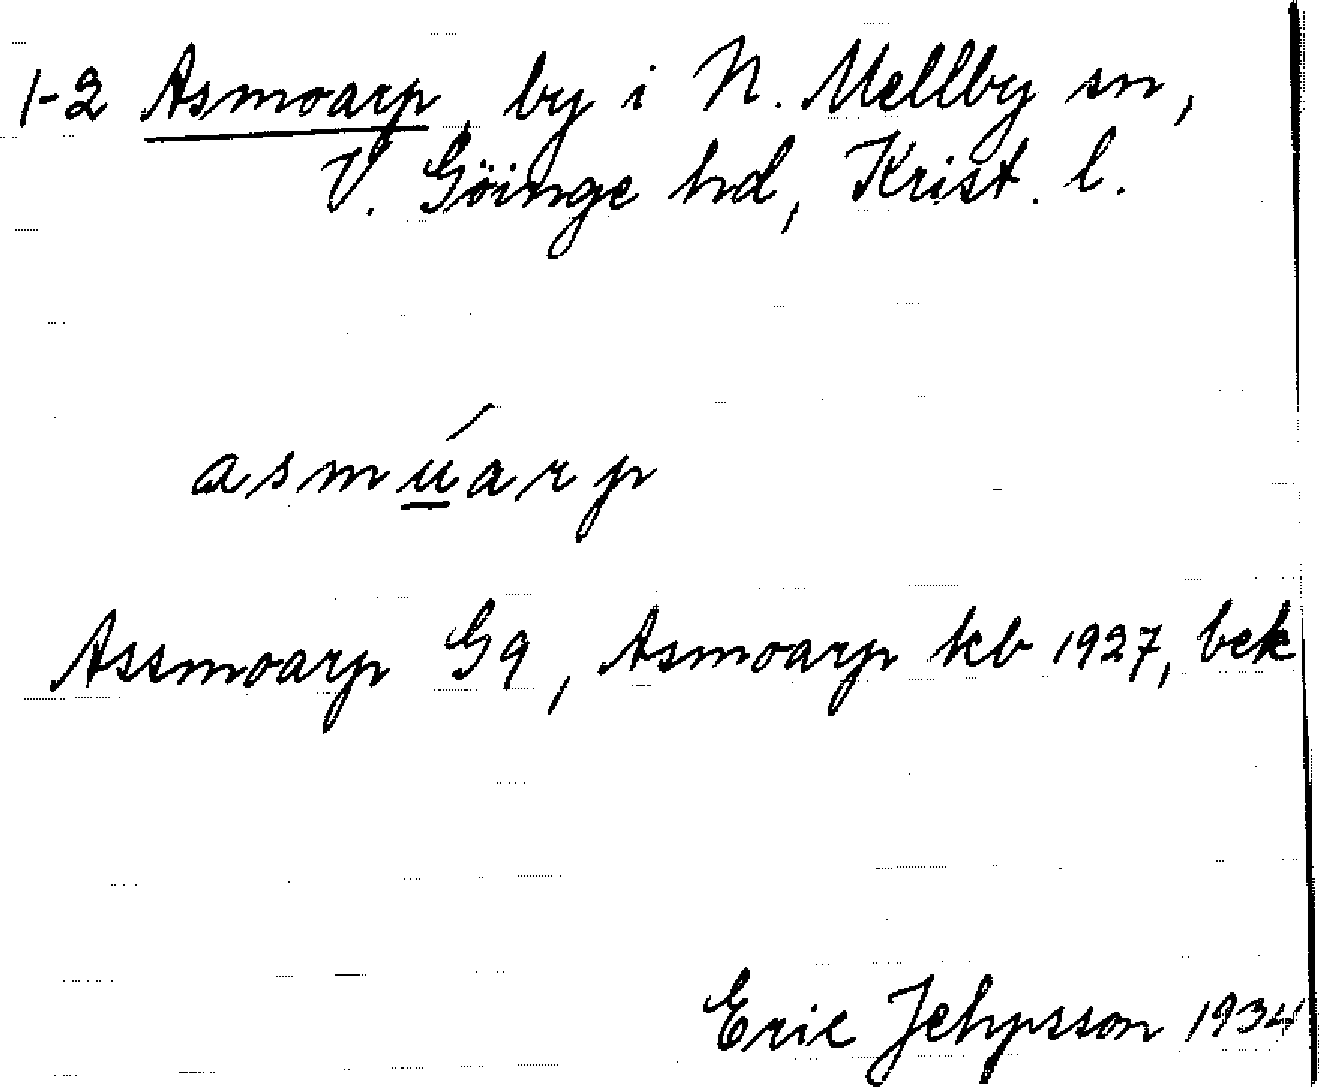 1-2 Asmoarp, by i N. Mellby sn,
V. Göinge hd, Krist. l.
asmúarp
Assmoarp G9, Asmoarp kb 1927, bek
Eric Jehpsson 1934